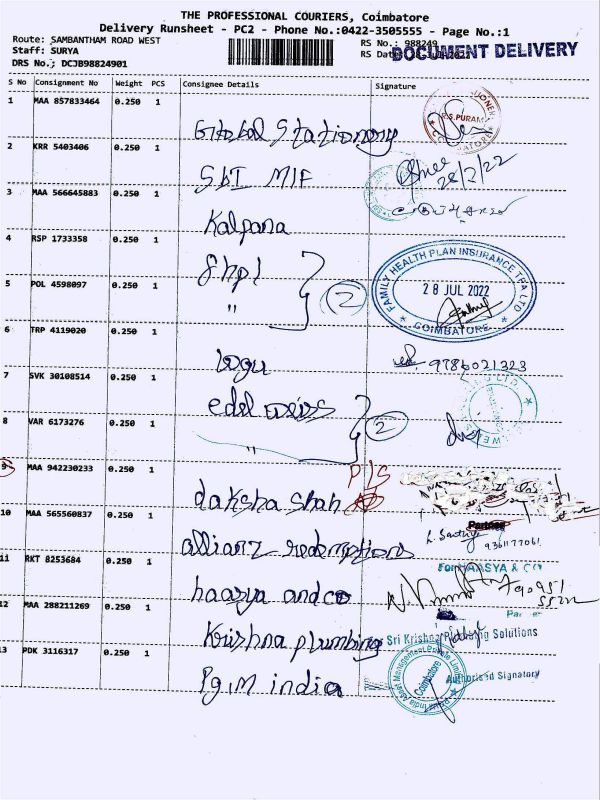 THE PROFESSIONAL COURIERS, Coimbatore
Delivery Runsheet - PC2 - Phone No.:0422-3505555 - Page No.:1
Route: SAMBANTHAM ROAD WEST
RS No.: 988249
DOCUMENT DELIVERY
Staff: SURYA
RS Date
DRS No.; DCJB98824901
S No Consignment No Weight PCS Consignee Details Signature
1 MAA 857833464 0.250 1 Global Stationary
R.S.PURAM
2 KRR 5403406 0.250 1 SBI MIF
28/7/22
3 MAA 566645883 0.250 1 Kalpana
4 RSP 1733358 0.250 1 fhpl
FAMILY HEALTH PLAN INSURANCE TPA LTD
28 JUL 2022
COIMBATORE
5 POL 4598097 0.250 1 "
2
6 TRP 4119020 0.250 1 logu
7 SVK 30108514 0.250 1 edelweiss
8 VAR 6173276 0.250 1 "
2
9 MAA 942230233 0.250 1 daksha shah
Pls
Partner
10 MAA 565560837 0.250 1 allianz redemptions
9361177061
11 RKT 8253684 0.250 1 haasya and co
For HAASYA & CO
12 MAA 288211269 0.250 1 Krishna plumbing
Sri Krishna Plumbing Solutions
13 PDK 3116317 0.250 1 Pgim india
Authorised Signatory
Coimbatore